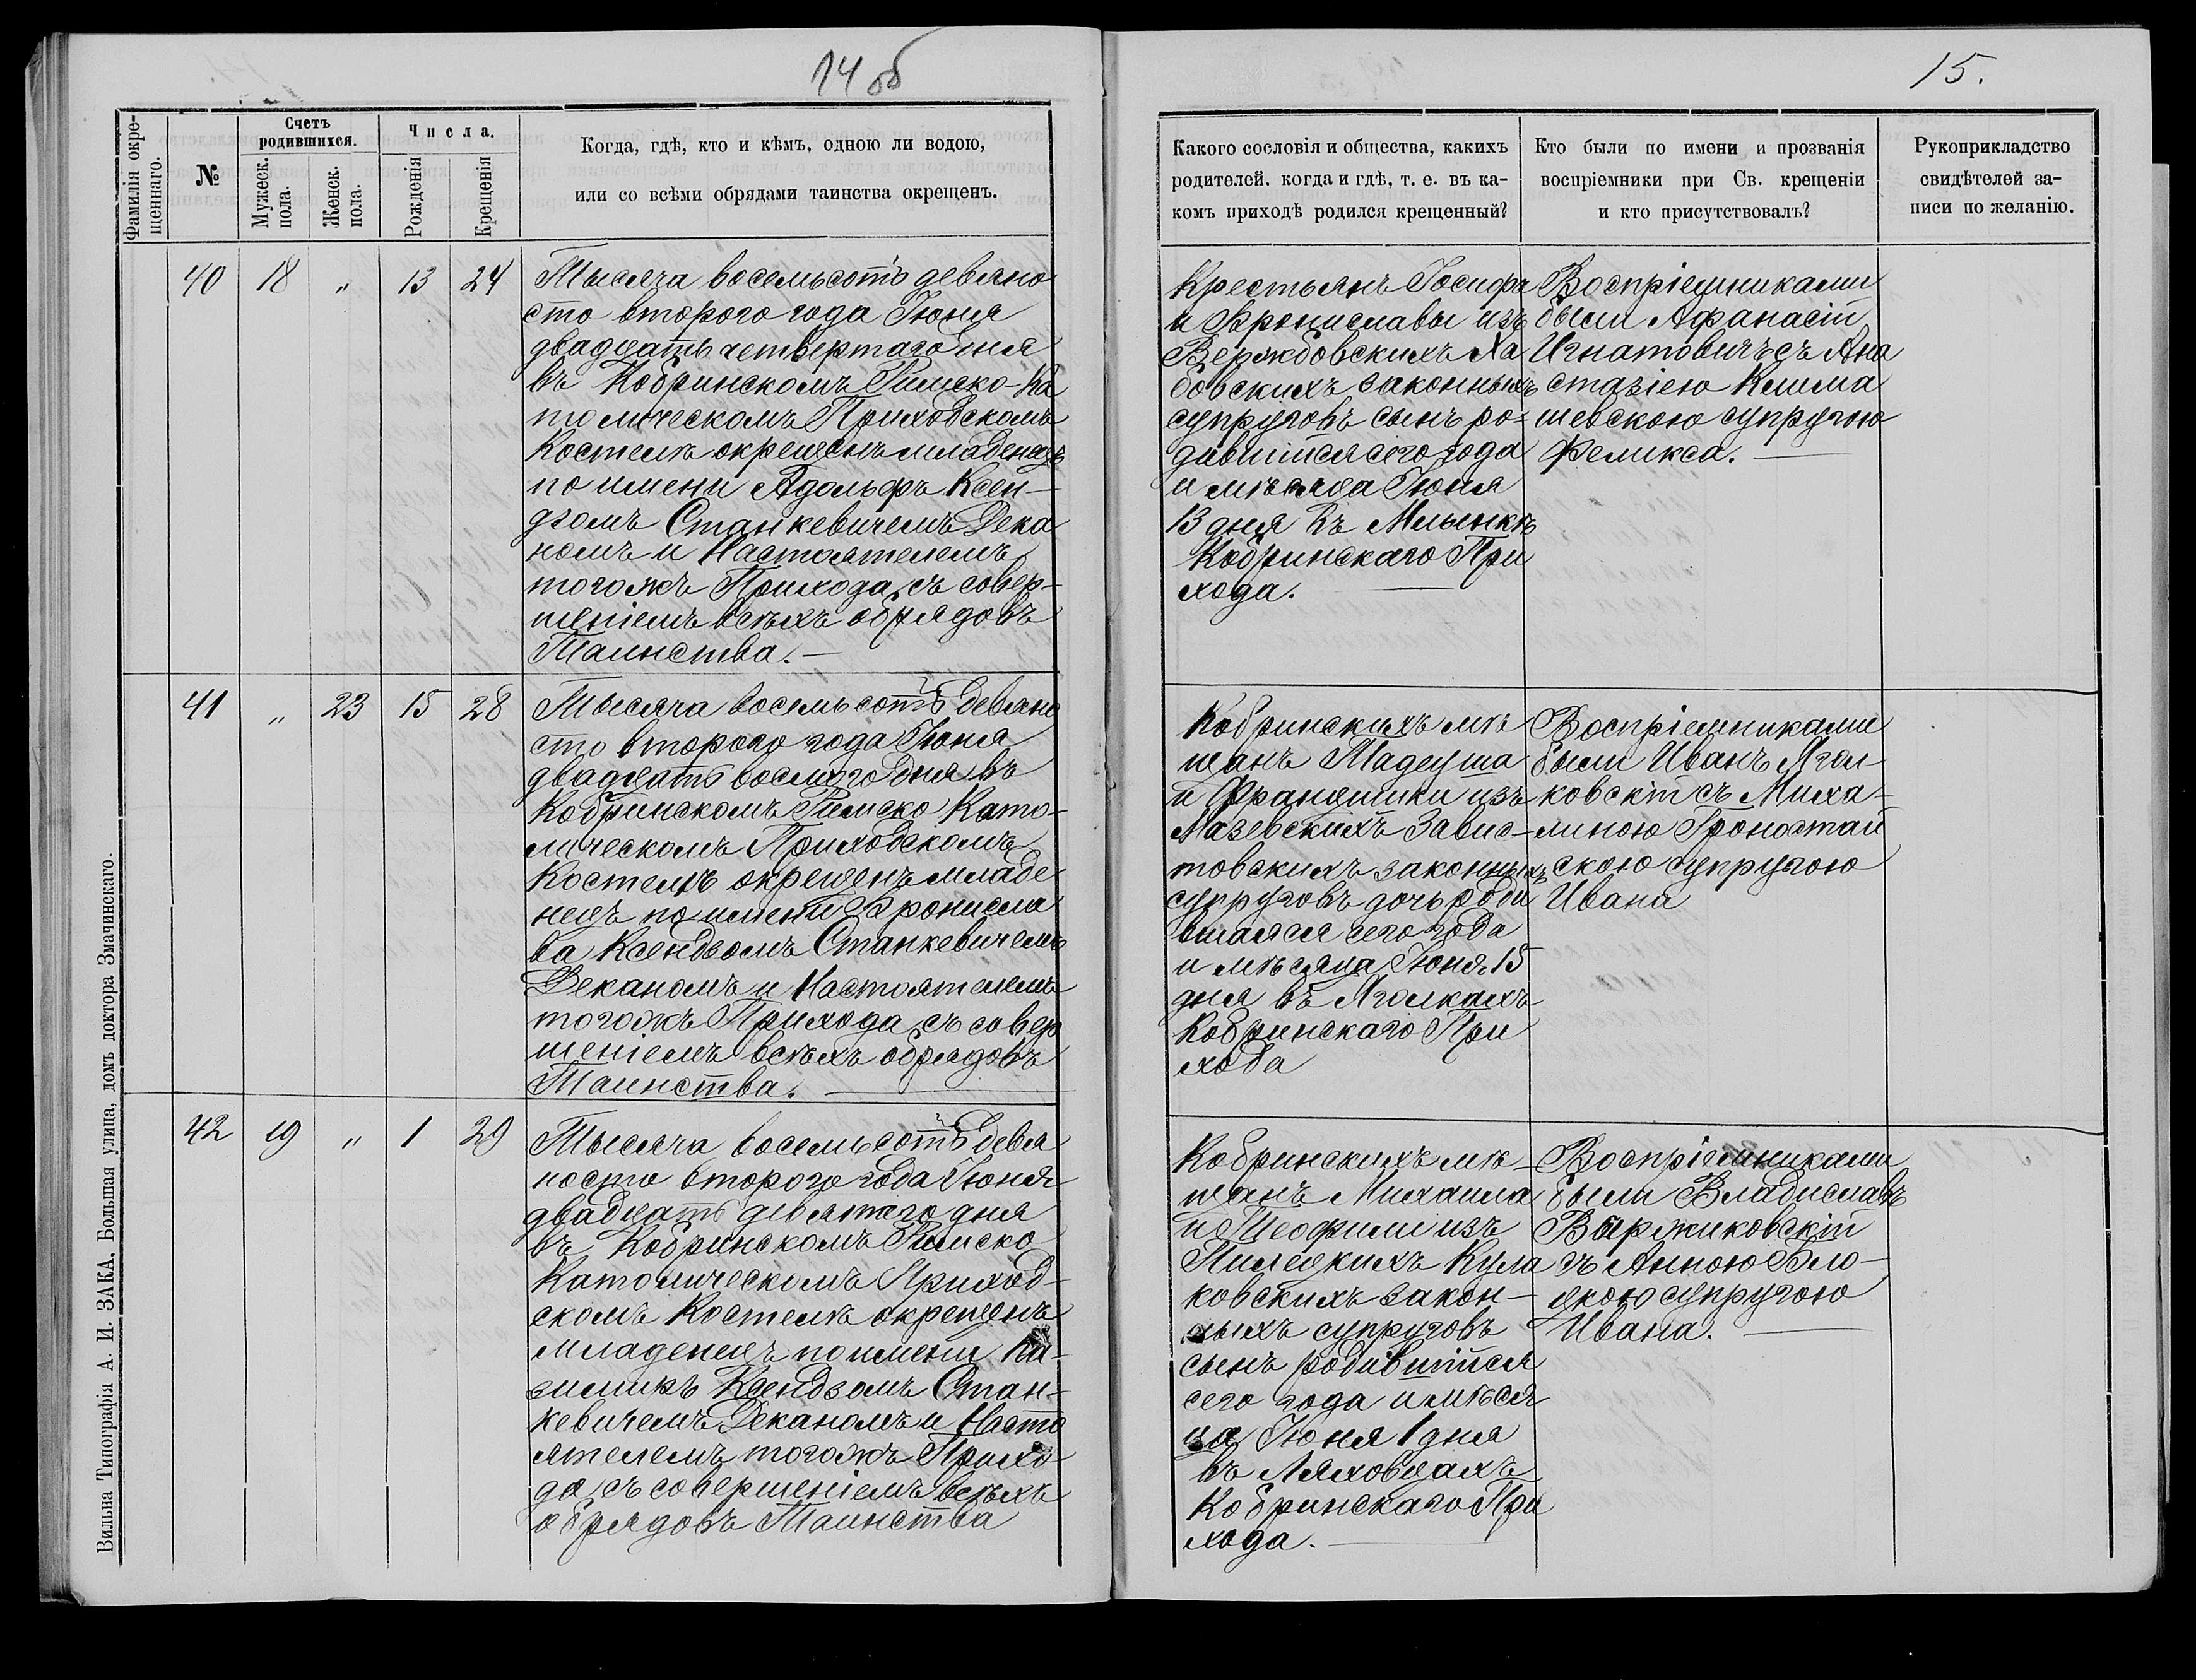 14 об
15.
Фамилія окре-
щеннаго.
№
Счетъ
родившихся.
Мужеск.
пола.
Женск.
пола.
Числа.
Рожденія
Крещенія
Когда, гдѣ, кто и кѣмъ, одною ли водою,
или со всѣми обрядами таинства окрещенъ.
Какого сословія и общества, какихъ
родителей. когда и гдѣ, т. е. въ ка-
комъ приходѣ родился крещенный?
Кто были по имени и прозванія
воспріемники при Св. крещеніи
и кто присутствовалъ?
Рукоприкладство
свидѣтелей за-
писи по желанію.
40 18 „ 13 24
Тысяча восемьсотъ девяно
сто второго года Іюня
двадцать четвертаго дня
въ Кобринскомъ Римско-Ка
толическомъ Приходскомъ
Костелѣ окрещенъ младенецъ
по имени Адольфъ Ксен-
дзомъ Станкевичемъ Дека
номъ и Настоятелемъ
тогожъ Прихода, съ совер-
шеніемъ всѣхъ обрядовъ
Таинства.—
Крестьянъ Іосифа
и Брониславы изъ
Вержбовскихъ Ха
бовскихъ законныхъ
супруговъ сынъ ро-
дившійся сего года
и мѣсяца Іюня
13 дня въ Млынкѣ
Кобринскаго При
хода.
Воспріемниками
были Афанасій
Игнатовичъ съ Ана
стазіею Клима
шевскою супругою
Феликса.
41 „ 23 15 28
Тысяча восемьсотъ девяно
сто второго года Іюня
двадцать восмого дня въ
Кобринскомъ Римско Като-
лическомъ Приходскомъ
Костелѣ окрещенъ младе
нецъ по имени Бронисла
ва Ксендзомъ Станкевичемъ
Деканомъ и Настоятелемъ
тогожъ Прихода, съ совер
шеніемъ всѣхъ обрядовъ
Таинства.
Кобринскихъ мѣ
щанъ Тадеуша
и Францишки изъ
Мазевскихъ Завис-
товскихъ законныхъ
супруговъ дочь роди
вшаяся сего года
и мѣсяца Іюня 15
дня въ Яголкахъ
Кобринскаго При
хода
Воспріемниками
были Иванъ Ягол-
ковскій съ Миха-
линою Гроностай
скою супругою
Ивана
42 19 „ 1 29
Тысяча восемьсотъ девя
носто второго года Іюня
двадцать девятаго дня
въ Кобринскомъ Римско
Католическомъ Приход-
скомъ Костелѣ окрещенъ
младенецъ по имени Ка-
зимиръ Ксендзомъ Стан-
кевичемъ Деканомъ и Насто
ятелемъ тогожъ Прихо
да, съ совершеніемъ всѣхъ
обрядовъ Таинства
Кобринскихъ мѣ-
щанъ Михаила
и Теофили изъ
Пилецкихъ Кула
ковскихъ закон-
ныхъ супруговъ
сынъ родившійся
сего года и мѣся
ца Іюня 1 дня
въ Ляховцахъ
Кобринскаго При
хода.
Воспріемниками
были Владиславъ
Варжиковскій
съ Анною Бло-
цкою супругою
Ивана.
Вильна Типографія А. И. ЗАКА, Большая улица, домъ доктора Змачинскаго.